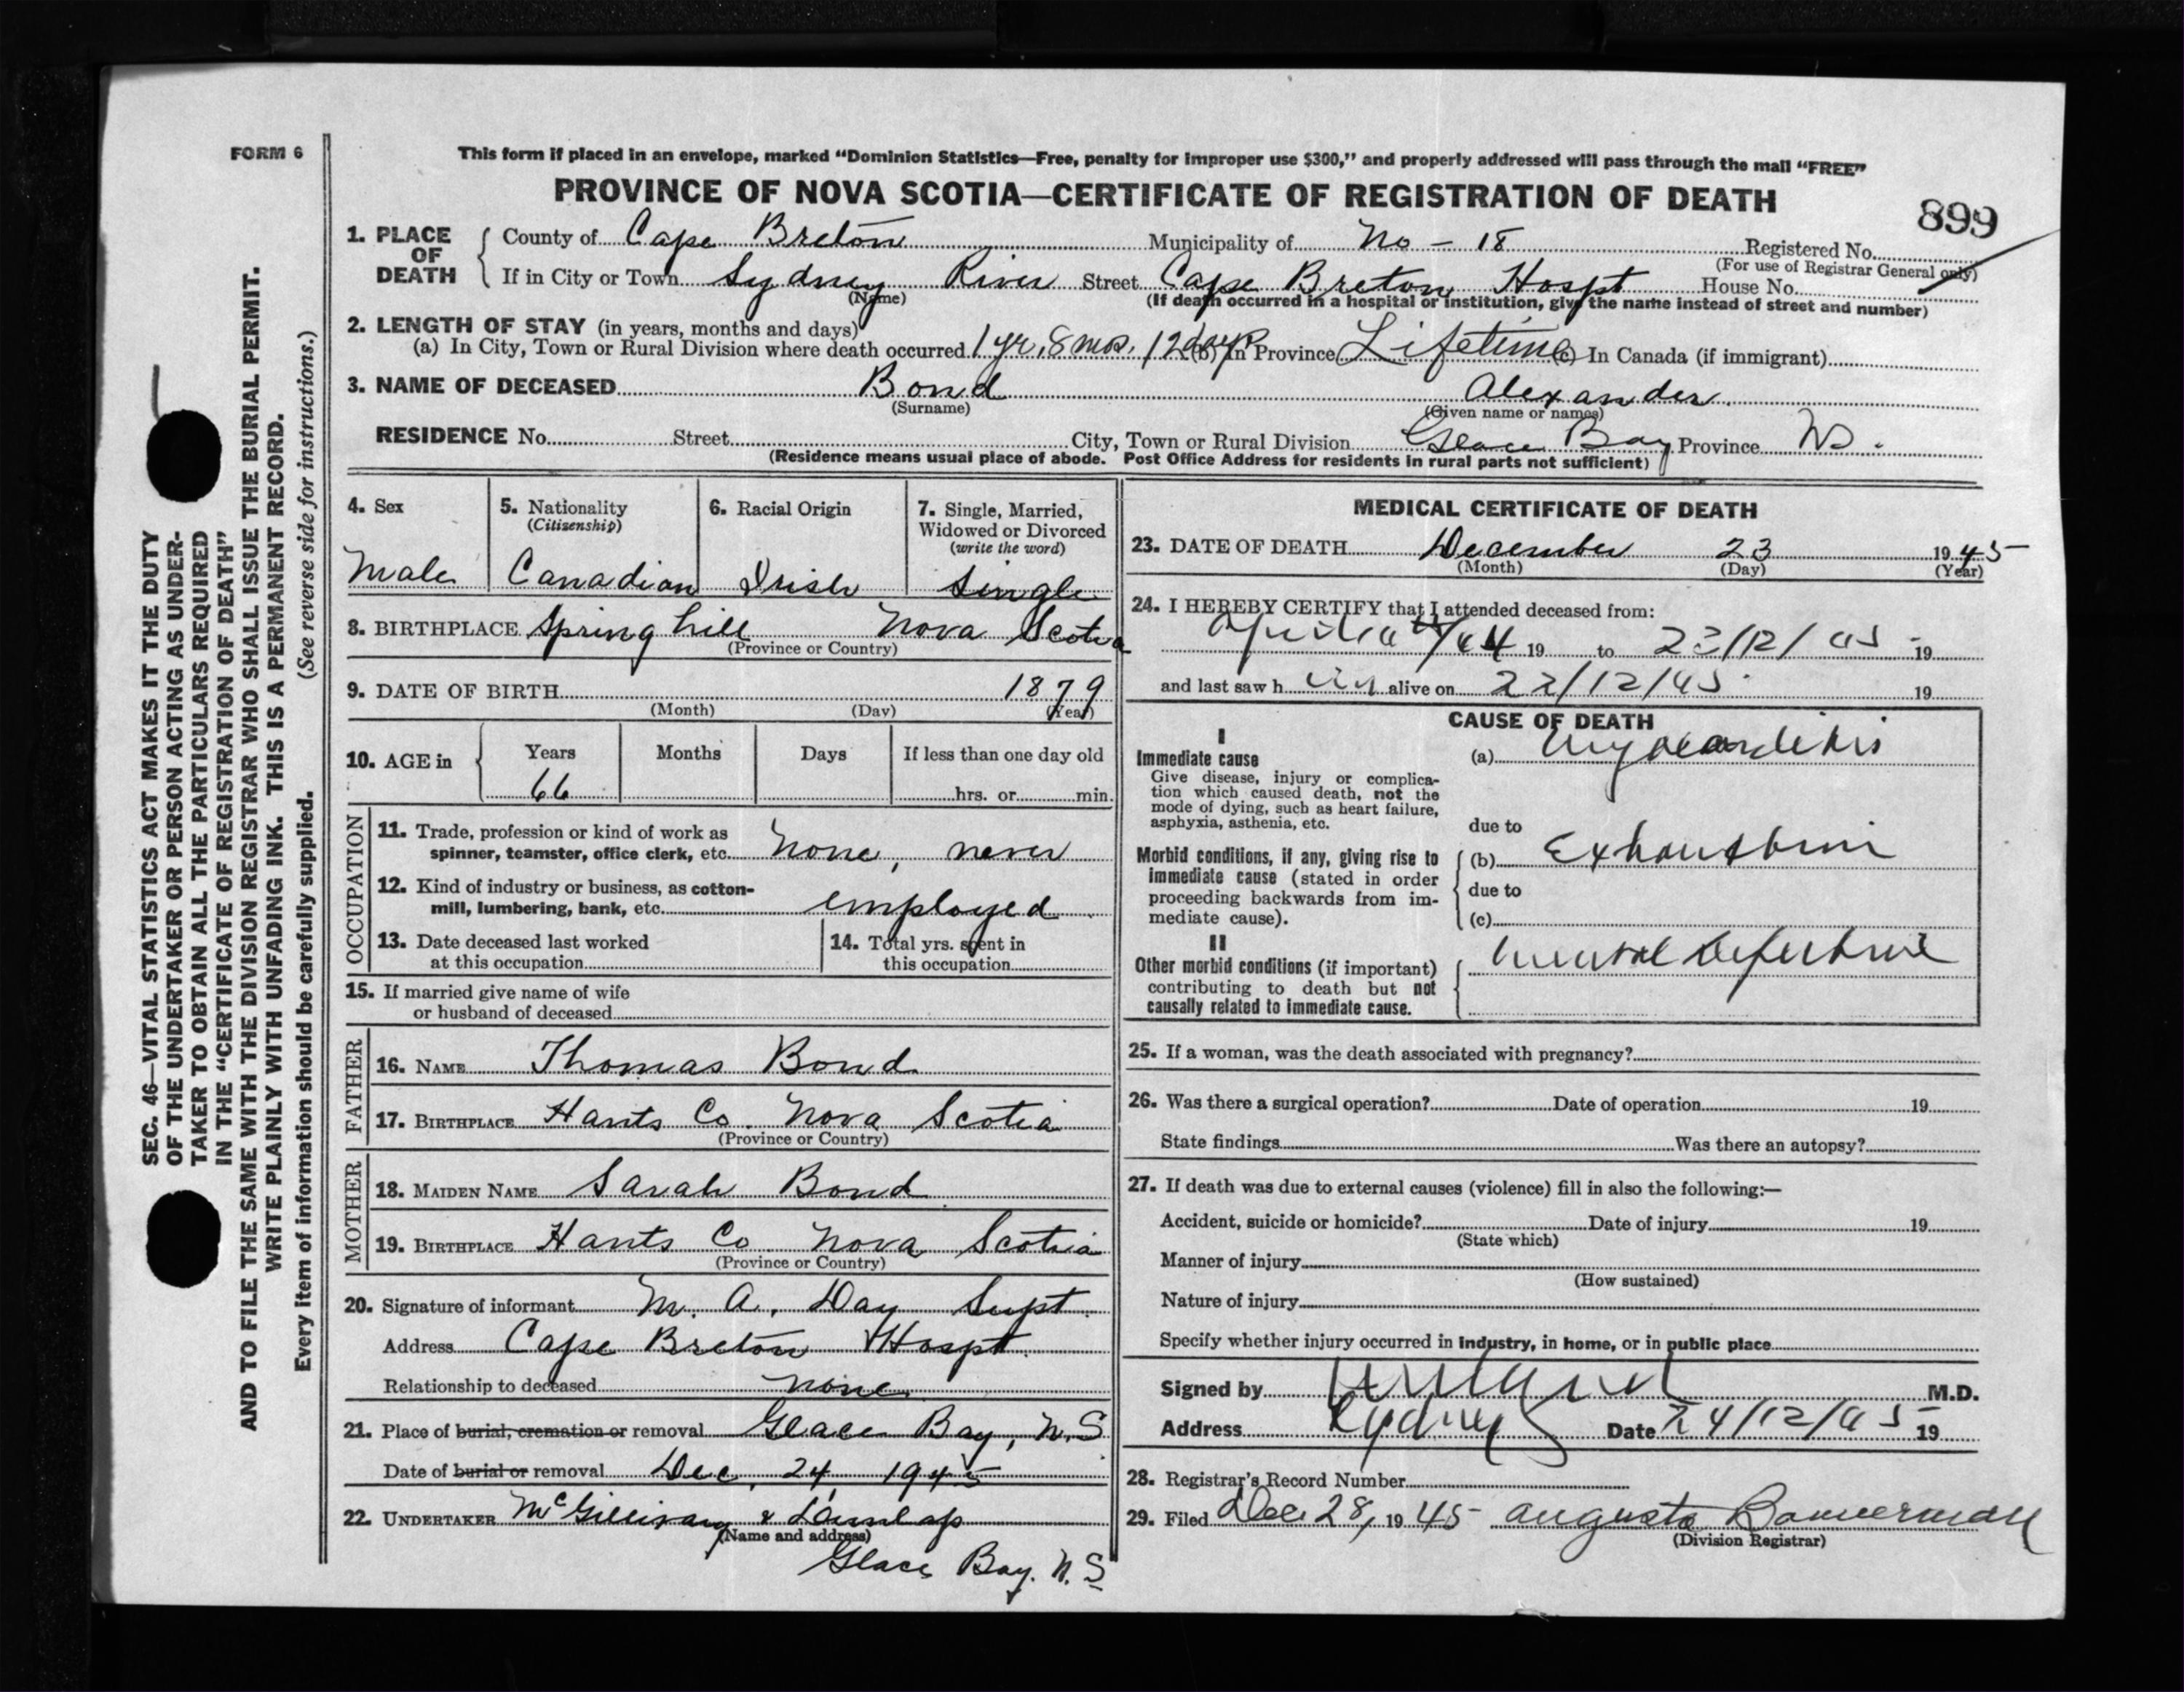 FORM 6
This form if placed in an envelope, marked “Dominion Statistics—Free, penalty for improper use $300,” and properly addressed will pass through the mail “FREE”
PROVINCE OF NOVA SCOTIA—CERTIFICATE OF REGISTRATION OF DEATH
899
1. PLACE OF DEATH
County of Cape Breton Municipality of No - 18 Registered No.
(For use of Registrar General only)
If in City or Town Sydney River Street Cape Breton Hospt House No.
(Name) (If death occurred in a hospital or institution, give the name instead of street and number)
2. LENGTH OF STAY (in years, months and days)
(a) In City, Town or Rural Division where death occurred 1 yr, 8 mos. 12 days (b) In Province Lifetime (c) In Canada (if immigrant)
3. NAME OF DECEASED Bond Alexander
(Surname) (Given name or names)
RESIDENCE No. Street City, Town or Rural Division Glace Bay Province NS.
(Residence means usual place of abode. Post Office Address for residents in rural parts not sufficient)
4. Sex
Male
5. Nationality
(Citizenship)
Canadian
6. Racial Origin
Irish
7. Single, Married,
Widowed or Divorced
(write the word)
Single
8. BIRTHPLACE Spring hill Nova Scotia
(Province or Country)
9. DATE OF BIRTH 1879
(Month) (Day) (Year)
10. AGE in
Years Months Days If less than one day old
66 hrs. or min.
OCCUPATION
11. Trade, profession or kind of work as
spinner, teamster, office clerk, etc. None, never
12. Kind of industry or business, as cotton-
mill, lumbering, bank, etc. employed
13. Date deceased last worked
at this occupation
14. Total yrs. spent in
this occupation
15. If married give name of wife
or husband of deceased
FATHER
16. NAME Thomas Bond
17. BIRTHPLACE Hants Co. Nova Scotia
(Province or Country)
MOTHER
18. MAIDEN NAME Sarah Bond
19. BIRTHPLACE Hants Co Nova Scotia
(Province or Country)
20. Signature of informant M. A. Day Supt.
Address Cape Breton Hospt.
Relationship to deceased none
21. Place of burial, cremation or removal Glace Bay, N.S
Date of burial or removal Dec. 24, 1945
22. UNDERTAKER McGillivary & Dunlap
(Name and address)
Glace Bay. N.S
MEDICAL CERTIFICATE OF DEATH
23. DATE OF DEATH December 23 1945
(Month) (Day) (Year)
24. I HEREBY CERTIFY that I attended deceased from:
19 to 23/12/45 19
and last saw h im alive on 22/12/45 19
CAUSE OF DEATH
I
Immediate cause
Give disease, injury or complica-
tion which caused death, not the
mode of dying, such as heart failure,
asphyxia, asthenia, etc.
(a) Myocarditis
due to
Morbid conditions, if any, giving rise to
immediate cause (stated in order
proceeding backwards from im-
mediate cause).
(b) Exhaustion
due to
(c)
II
Other morbid conditions (if important)
contributing to death but not
causally related to immediate cause.
Mental Defective
25. If a woman, was the death associated with pregnancy?
26. Was there a surgical operation? Date of operation 19
State findings Was there an autopsy?
27. If death was due to external causes (violence) fill in also the following:—
Accident, suicide or homicide? Date of injury 19
(State which)
Manner of injury
(How sustained)
Nature of injury
Specify whether injury occurred in industry, in home, or in public place
Signed by M.D.
Address Sydney Date 24/12/45 19
28. Registrar's Record Number
29. Filed Dec. 28, 1945 Augusta Bannerman
(Division Registrar)
SEC. 46—VITAL STATISTICS ACT MAKES IT THE DUTY
OF THE UNDERTAKER OR PERSON ACTING AS UNDER-
TAKER TO OBTAIN ALL THE PARTICULARS REQUIRED
IN THE “CERTIFICATE OF REGISTRATION OF DEATH”
AND TO FILE THE SAME WITH THE DIVISION REGISTRAR WHO SHALL ISSUE THE BURIAL PERMIT.
WRITE PLAINLY WITH UNFADING INK. THIS IS A PERMANENT RECORD.
Every item of information should be carefully supplied. (See reverse side for instructions.)